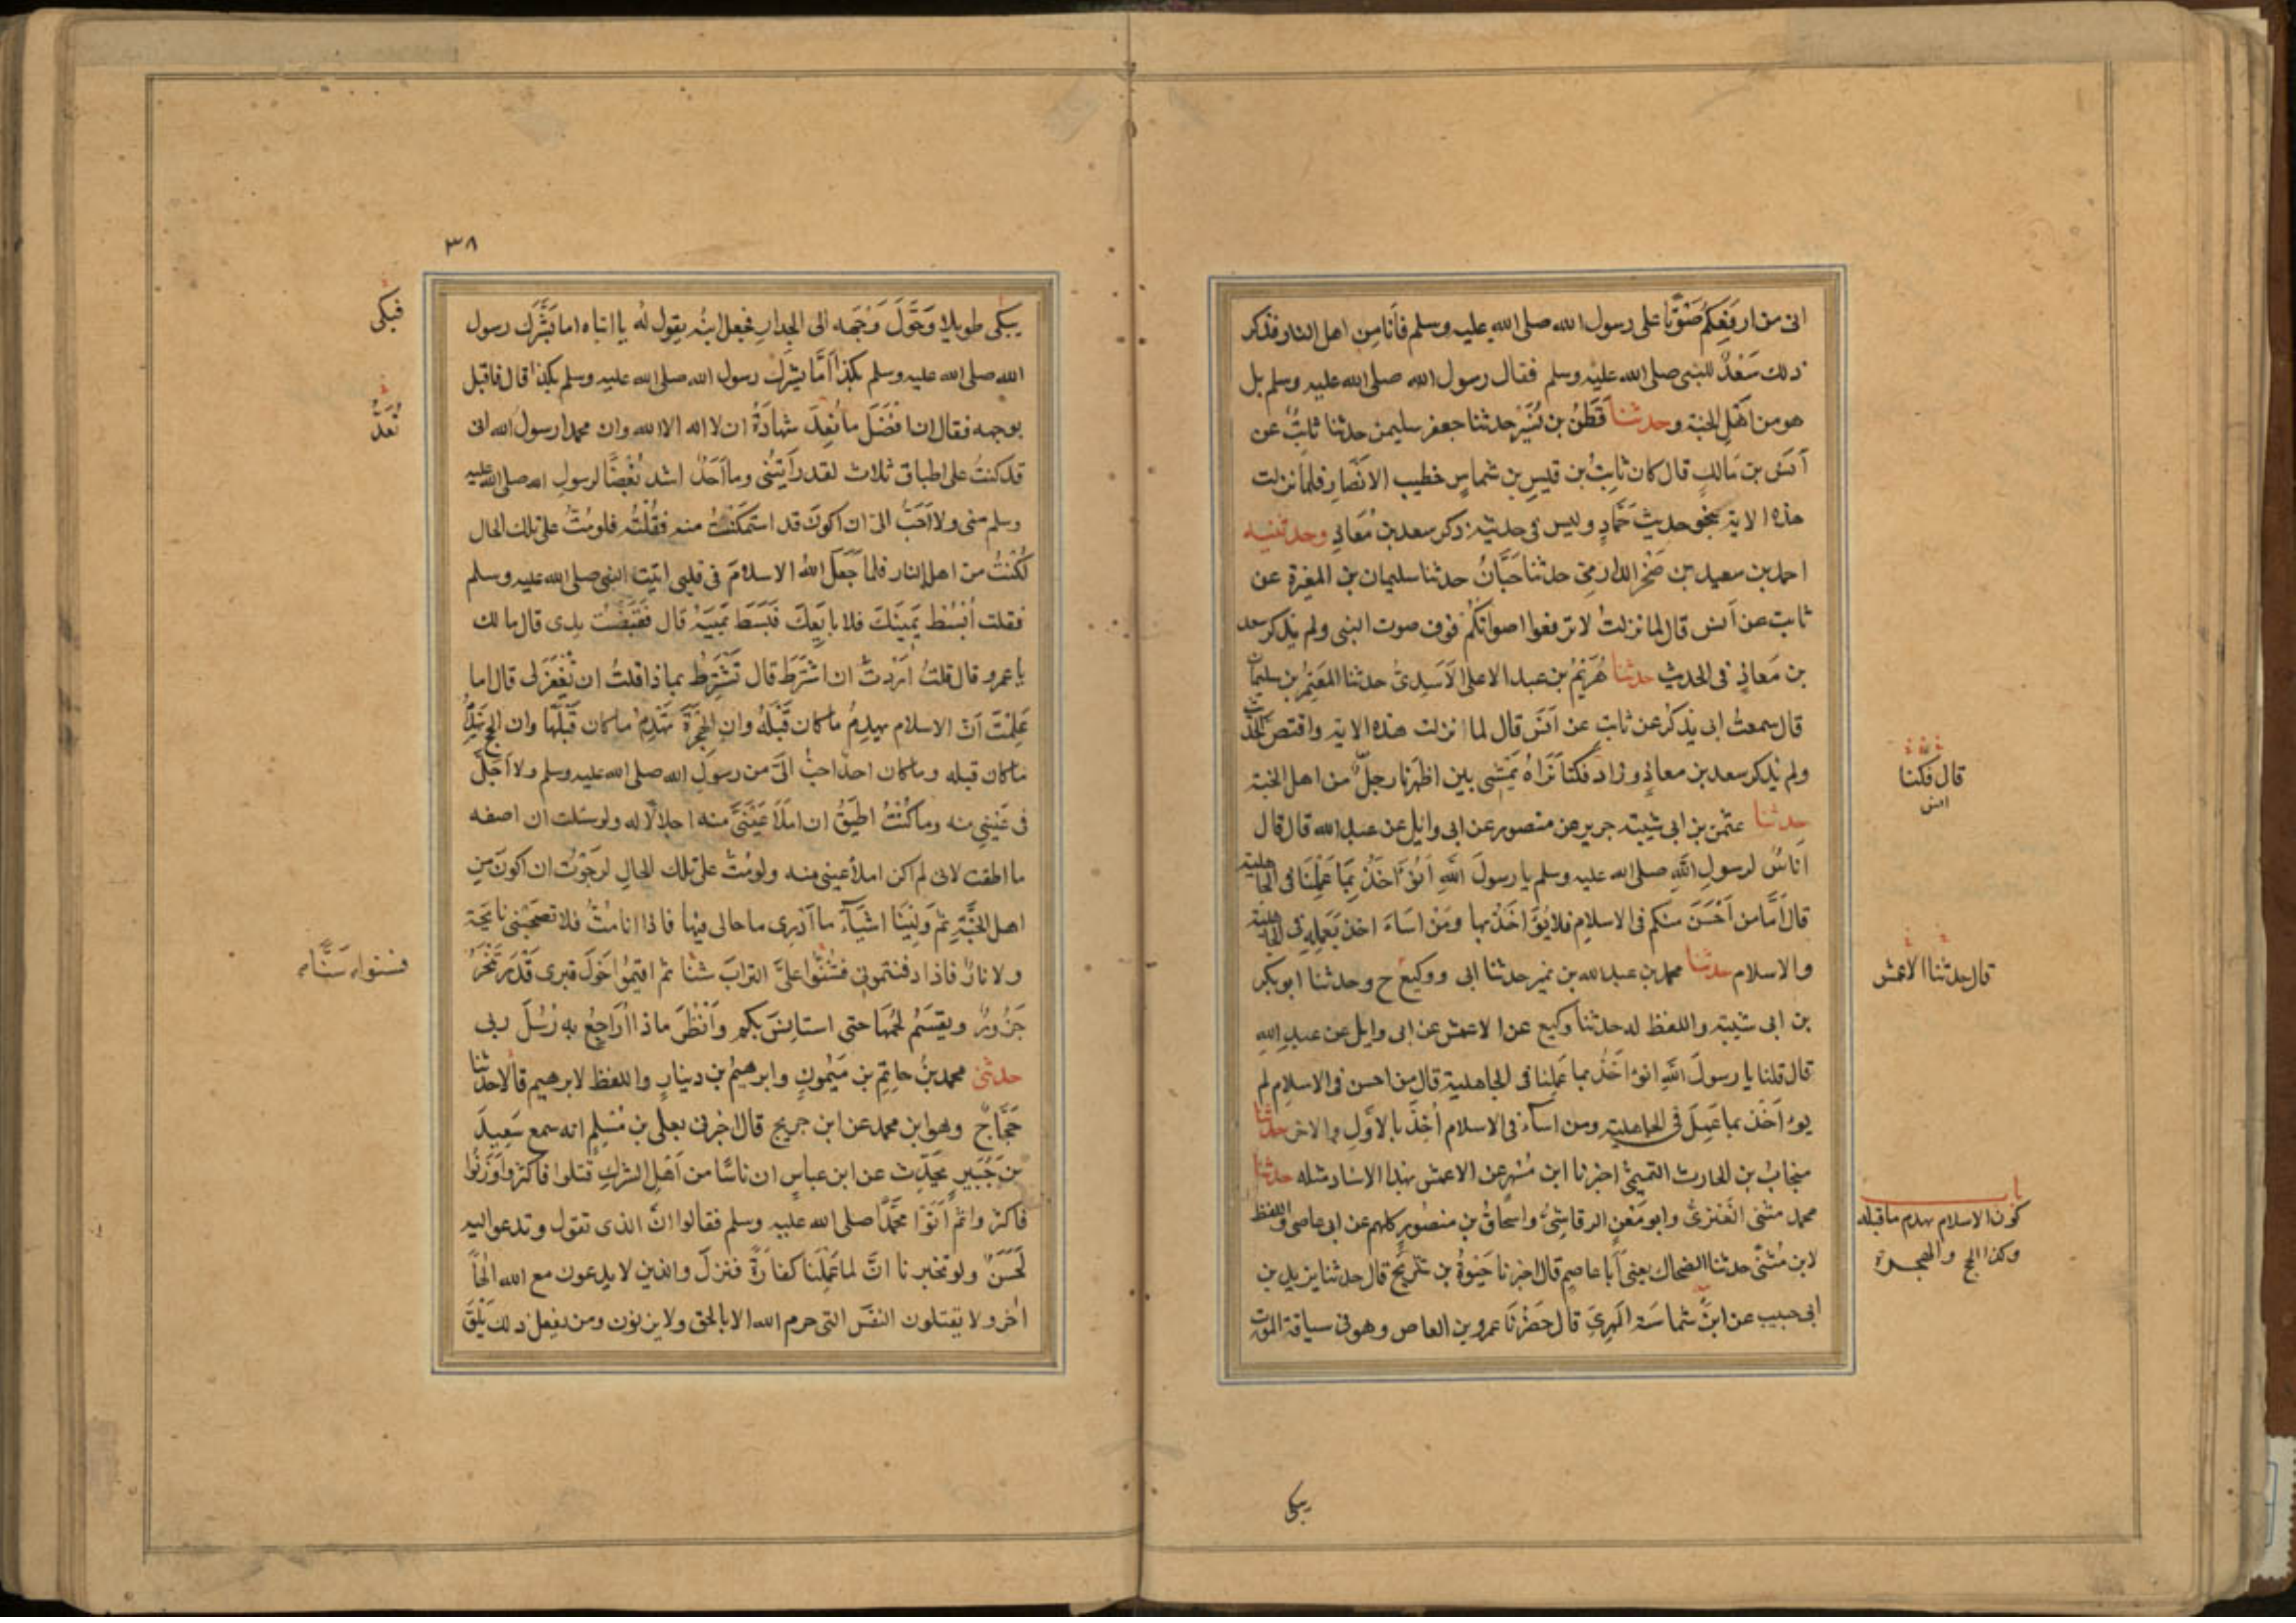 انى من ارفعكم صوتا على رسول الله صلى الله عليه وسلم فأنا من اهل النار فذكر
ذلك سَعْدٌ للنبى صلى الله عليه وسلم فقال رسول الله صلى الله عليه وسلم بل
هو من اهل الجنة وحدثنا قَطَنُ بن نُسَيْر حدثنا جعفر سليمن حدثنا ثابتٌ عن
أنس بن مالكٍ قال كان ثابتُ بن قيسِ بن شماسٍ خطيب الانصار فلما نزلت
هذه الاية بنحو حديث حَمَّادٍ وليس فى حديثه ذكر سعد بن مُعَاذٍ وحدثنيه
احمد بن سعيد بن صَخْر الدارمىّ حدثنا حَبَّانُ حدثنا سليمان بن المغيرة عن
ثابت عن أنس قال لما نزلتْ لا ترفعوا اصواتكم فوق صوت النبى ولم يذكر سعد
بن مَعاذٍ فى الحديث حدثنا هُرَيْمُ بن عبد الاعلى الاَسَدِىُّ حدثنا المعتمِرُ بن سليمان
قال سمعتُ ابى يذكرُ عن ثابتٍ عن أنسٍ قال لما انزلت هذه الاية واقتص الحديث
ولم يذكر سعد بن معاذٍ وزاد فكنا نَرَاهُ يَمْشى بين اظهرنا رجلٌ من اهل الجنة
حدثنا عثمن بن ابى شيبة جرير عن منصور عن ابى وايل عن عبد الله قال قال
اناسٌ لرسولِ اللهِ صلى الله عليه وسلم يا رسولَ اللهِ اَنُؤَاخَذُ بِمَا عَمِلْنَا فى الجاهلية
قال أمَّا من أَحْسَنَ منكم فى الاسلام فلا يُؤَاخَذُ بها ومَنْ اَسَاءَ اخذ بعمله فى الجاهلية
والاسلام حدثنا محمد بن عبد الله بن نمير حدثنا ابى ووكيع ح وحدثنا ابو بكر
بن ابى شيبة واللفظ له حدثنا وكيع عن الاعمش عن ابى وايل عن عبدِ اللهِ
قال قلنا يا رسولَ اللهِ انؤاخَذُ بما عَمِلنا فى الجاهلية قال من احسن فى الاسلام لم
يؤاخَذ بما عَمِلَ فى الجاهلية ومن اساَء فى الاسلام أُخِذَ بالاَوَّلِ والاخر حدثنا
منجابُ بن الحارث التميمىُّ اخبرنا ابن مُسْهِرٍ عن الاعمش بهذا الاسناد مثله حدثنا
محمد مثنى العَنَزِىُّ وابو مَعْنٍ الرقاشِىُّ واسحاقُ بن منصورٍ كلهم عن ابى عاصمٍ واللفظ
لابن مُثنَّى حدثنا الضحاك يعنى أبا عاصمٍ قال اخبرنا حَيْوَةُ بن شُرَيْحٍ قال حدثنا يزيد بن
ابى حبيب عن ابن شماسَة المهرِىّ قال حَضَرْنَا عمرو بن العاص وهو فى سياقة الموت
قال فكنا
انس
قال حدثنا الاعمش
باب
كون الاسلام يهدم ما قبله
وكذا الحج والهجرة
يبكى
٣٨
يبكى طويلا وَحَوَّلَ وَجْهَه الى الجدارِ فجعل ابنُه يقول له يا ابتاه اما بَشَّرَك رسول
الله صلى الله عليه وسلم بكذا أَمَا بشرك رسول الله صلى الله عليه وسلم بكذا قال فاقبل
بوجهه فقال ان افضَلَ ما نُعِدّ شهادَةُ ان لا اله الا الله وان محمدا رسول الله انى
قد كنتُ على اطباق ثلاث لقد رأيتُنى وما أَحَدٌ اشد بُغْضًا لرسولِ الله صلى الله عليه
وسلم منى ولا اَحَبَّ الىّ ان اكونَ قد استمكنْتُ منه فَقُلْتُه فلو مُتُّ على تلك الحال
لَكُنْتُ من اهل النار فلما جَعَلَ اللهُ الاسلامَ فى قلبى اتيت النبى صلى الله عليه وسلم
فقلت أبْسُطْ يَمِينَكَ فلابايعك فَبَسَطَ يَمِينَه قال فَقَبَضْتُ يدى قال ما لك
يا عمرو قال قلتُ اَرَدْتُ ان اشترطَ قال تَشْتَرِطُ بماذا قلتُ ان يُغْفَرَ لى قال اما
عَلِمْتَ اَنّ الاسلام يهدِمُ ما كان قَبْلَهُ وان الهِجْرَةَ تَهْدِمُ ما كان قَبْلَهَا وان الحج يَهْدِمُ
ما كان قبله وما كان احد احبَّ الىّ من رسولِ الله صلى الله عليه وسلم ولا اَجَلَّ
فى عَيْنِى منه وما كُنْتُ اطيقُ ان املأ عَيْنَىَّ منه اجلالا له ولو سئلت ان اصفه
ما اطقت لانى لم اكن املأ عينى منه ولو مُتُّ على تلك الحالِ لرَجَوْتُ ان اكونَ من
اهل الجَنَّةِ ثم وَلِينَا اشيَآءَ ما اَدْرِى ما حالى فيها فاذا انا متُّ فلا تصحَبْنى نايحة
ولا نارٌ فاذا دفنتمونى فشُنُّوا علىَّ الترابَ شَنًّا ثم اقيمُوا حَوْلَ قبرى قَدْرَ ما تُنْحَرُ
جَزُورٌ ويقسَمُ لحْمُهَا حتى استانِسَ بكم وَاَنْظُرَ ماذا اُرَاجِعُ به رُسُلَ ربى
حدثنى محمد بنُ حاتِمِ بن مَيْمُونٍ وابرهيمُ بن دينارٍ واللفظ لابرهيم قالا حدثنا
حَجَّاجٌ وهو ابن محمد عن ابن جريج قال اخبرنى يعلى بن مُسْلِمٍ انه سمع سَعِيدَ
بن جُبَيرٍ يحَدِّث عن ابن عباسٍ ان ناسًا من اَهْلِ الشرك قتلوا فاكثروا وَزَنُوا
فاكثروا ثم أَتَوْا محَمَّدًا صلى الله عليه وسلم فقالوا انَّ الذى تقول وتدعو اليه
لَحَسَنٌ ولو تخبرنا انَّ لما عَمِلْنَا كفارَةً فنزلَ والذين لا يدعون مع الله الهًا
اخر ولا يقتلون النفسَ التى حرم الله الا بالحق ولا يزنون ومن يفعل ذلك يَلْقَ
فبكى
نُعِدُّ
فسنوا سَنًّا